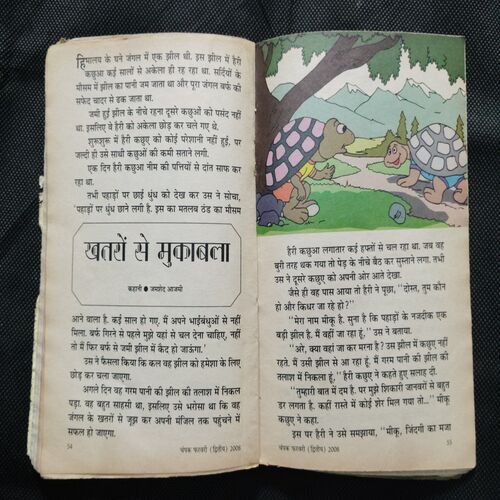 हिमालय के घने जंगल में एक झील थी. इस झील में हैरी
कछुआ कई सालों से अकेला ही रह रहा था. सर्दियों के
मौसम में झील का पानी जम जाता था और पूरा जंगल बर्फ की
सफेद चादर से ढक जाता था.
जमी हुई झील के नीचे रहना दूसरे कछुओं को पसंद नहीं
था. इसलिए वे हैरी को अकेला छोड़ कर चले गए थे.
शुरूशुरू में हैरी कछुए को कोई परेशानी नहीं हुई, पर
जल्दी ही उसे साथी कछुओं की कमी सताने लगी.
एक दिन हैरी कछुआ नीम की पत्तियों से दांत साफ कर
रहा था.
तभी पहाड़ों पर छाई धुंध को देख कर उस ने सोचा,
'पहाड़ों पर धुंध छाने लगी है. इस का मतलब ठंड का मौसम
खतरों से मुकाबला
कहानी ● जमशेद आजमी
आने वाला है. कई साल हो गए, मैं अपने भाईबंधुओं से नहीं
मिला. बर्फ गिरने से पहले मुझे यहां से चल देना चाहिए, नहीं
तो मैं फिर बर्फ से जमी झील में कैद हो जाऊंगा.'
उस ने फैसला किया कि कल वह झील को हमेशा के लिए
छोड़ कर चला जाएगा.
अगले दिन वह गरम पानी की झील की तलाश में निकल
पड़ा. वह बहुत साहसी था, इसलिए उसे भरोसा था कि वह
जंगल के खतरों से जूझ कर अपनी मंजिल तक पहुंचने में
सफल हो जाएगा.
54
चंपक फरवरी (द्वितीय) 2008
हैरी कछुआ लगातार कई हफ्तों से चल रहा था. जब वह
बुरी तरह थक गया तो पेड़ के नीचे बैठ कर सुस्ताने लगा. तभी
उस ने दूसरे कछुए को अपनी ओर आते देखा.
जैसे ही वह पास आया तो हैरी ने पूछा, ''दोस्त, तुम कौन
हो और किधर जा रहे हो?''
''मेरा नाम मीकू है. सुना है कि पहाड़ों के नजदीक एक
बड़ी झील है. मैं वहीं जा रहा हूं,'' उस ने बताया.
''अरे, क्या वहां जा कर मरना है? उस झील में कछुए नहीं
रहते. मैं उसी झील से आ रहा हूं. मैं गरम पानी की झील की
तलाश में निकला हूं,'' हैरी कछुए ने कहते हुए सलाह दी.
''तुम्हारी बात में दम है. पर मुझे शिकारी जानवरों से बहुत
डर लगता है. कहीं रास्ते में कोई शेर मिल गया तो...'' मीकू
कछुए ने कहा.
इस पर हैरी ने उसे समझाया, ''मीकू, जिंदगी का मजा
चंपक फरवरी (द्वितीय) 2008
55